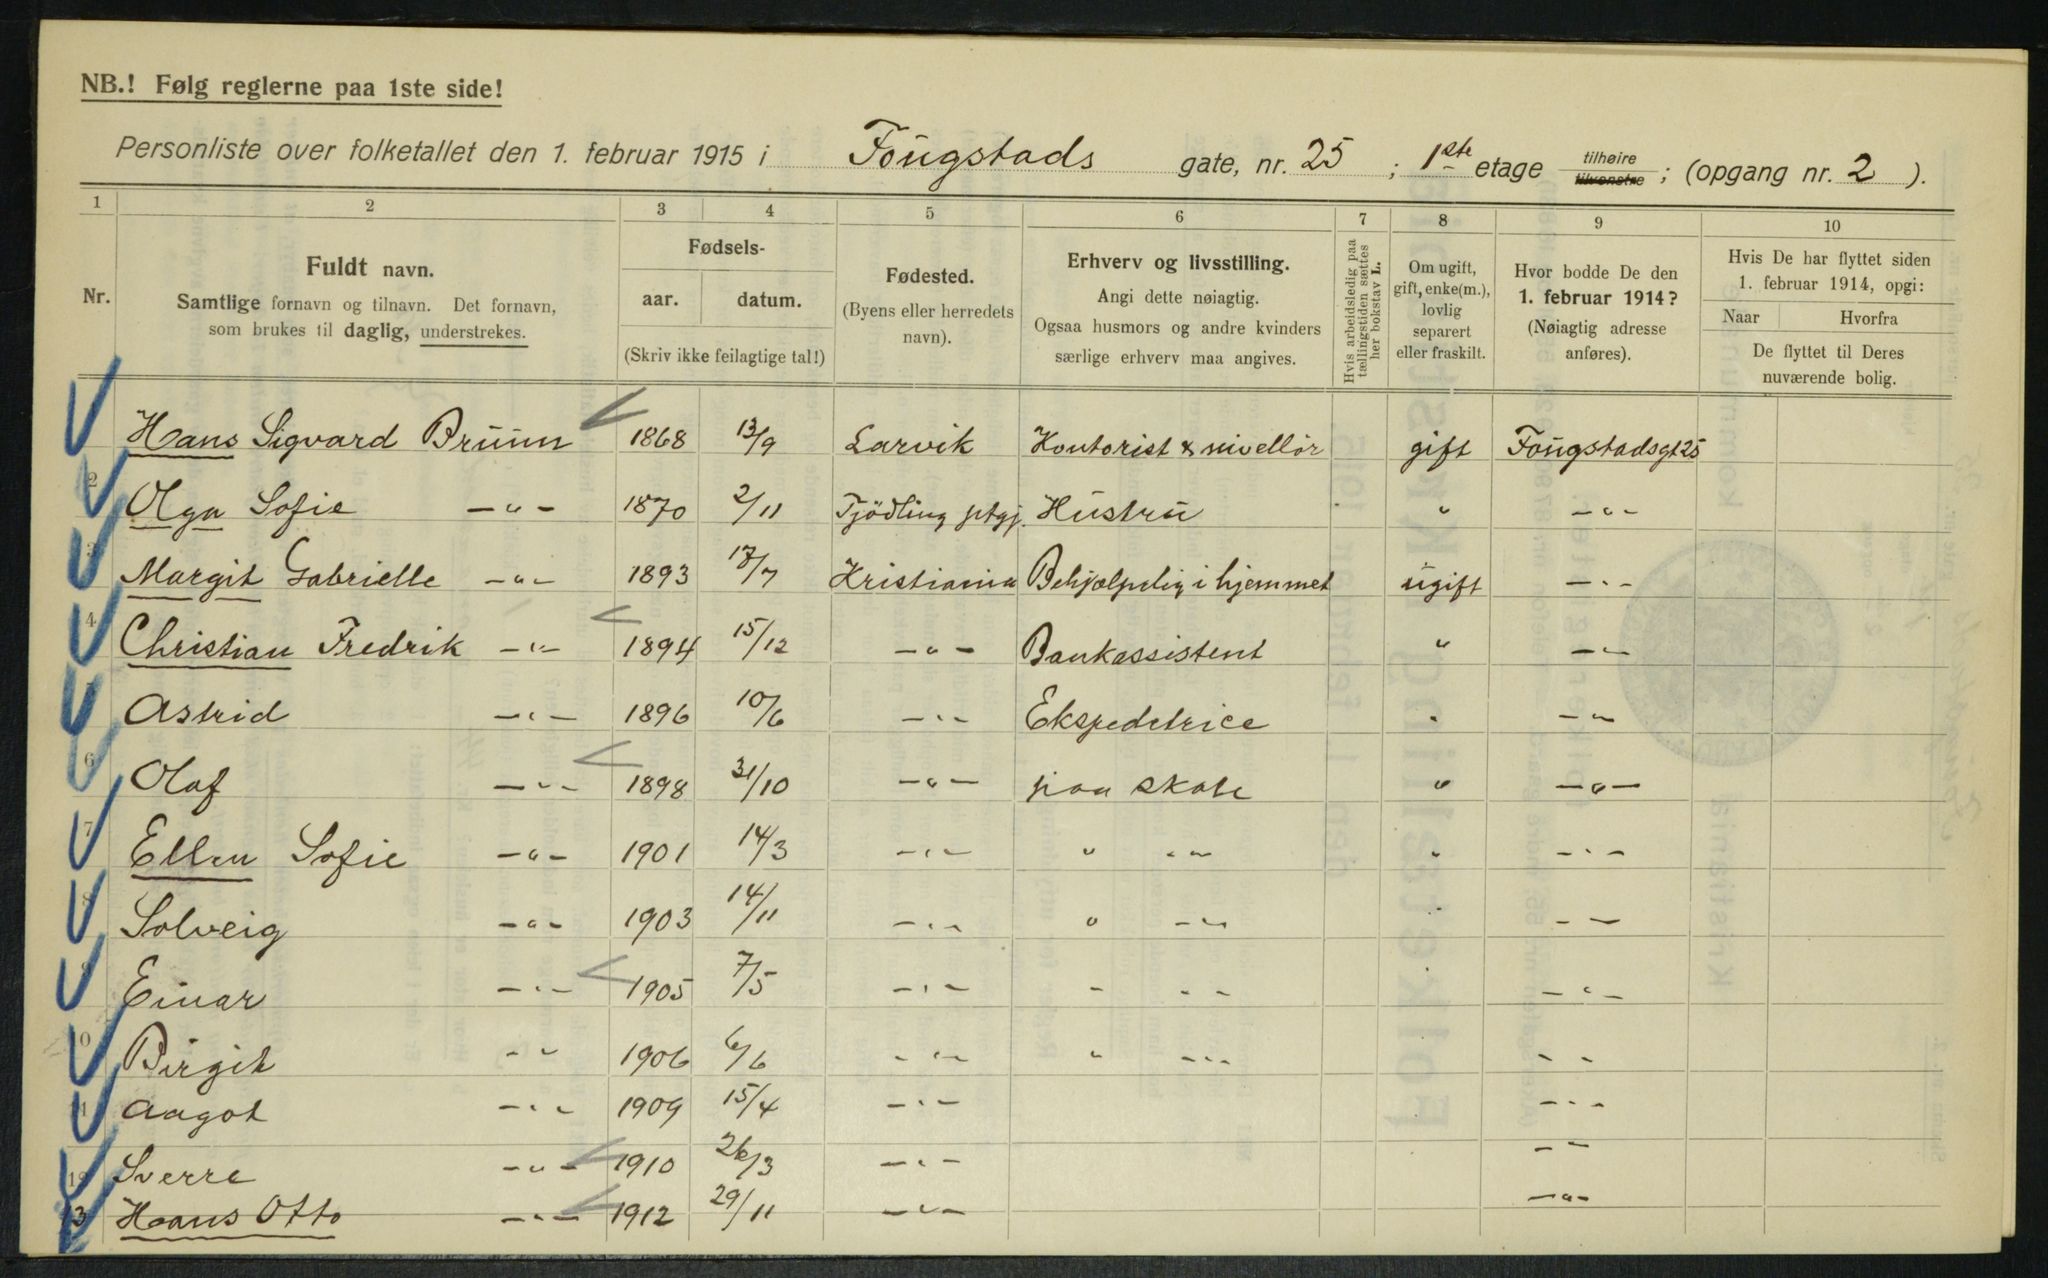 NB.! Følg reglerne paa 1ste side!
Personliste over folketallet den 1. februar 1915 i Fougstads gate, nr. 25 ; 1ste etage tilhøire tilvenstre ; (opgang nr. 2 ).
1 2 3 4 5 6 7 8 9 10
Nr.
Fuldt navn.
Samtlige fornavn og tilnavn. Det fornavn,
som brukes til daglig, understrekes.
Fødsels-
aar. datum.
(Skriv ikke feilagtige tal!)
Fødested.
(Byens eller herredets
navn).
Erhverv og livsstilling.
Angi dette nøiagtig.
Ogsaa husmors og andre kvinders
særlige erhverv maa angives.
Hvis arbeidsledig paa
tællingstiden sættes
her bokstav L.
Om ugift,
gift, enke(m.),
lovlig
separert
eller fraskilt.
Hvor bodde De den
1. februar 1914?
(Nøiagtig adresse
anføres).
Hvis De har flyttet siden
1. februar 1914, opgi:
Naar Hvorfra
De flyttet til Deres
nuværende bolig.
Hans Sigvard Bruun 1868 13/9 Larvik Kontorist & nivellör gift Fougstadsgt 25
2 Olga Sofie —"— 1870 2/11 Tjödling prtgj. Hustru " —"—
3 Margit Gabrielle —"— 1893 17/7 Kristiania Behjælpelig i hjemmet ugift —"—
4 Christian Fredrik —"— 1894 15/12 —"— Bankassistent " —"—
Astrid —"— 1896 10/6 —"— Ekspedetrice " —"—
6 Olaf —"— 1898 31/10 —"— paa skole " —"—
7 Ellen Sofie —"— 1901 14/3 —"— " —"— " —"—
8 Solveig —"— 1903 14/11 —"— " —"— " —"—
9 Einar —"— 1905 7/5 —"— " —"— —"—
0 Birgit —"— 1906 6/6 —"— " —"— —"—
1 Aagot —"— 1909 15/4 —"— —"—
12 Sverre —"— 1910 26/3 —"— —"—
13 Hans Otto —"— 1912 29/11 —"— —"—